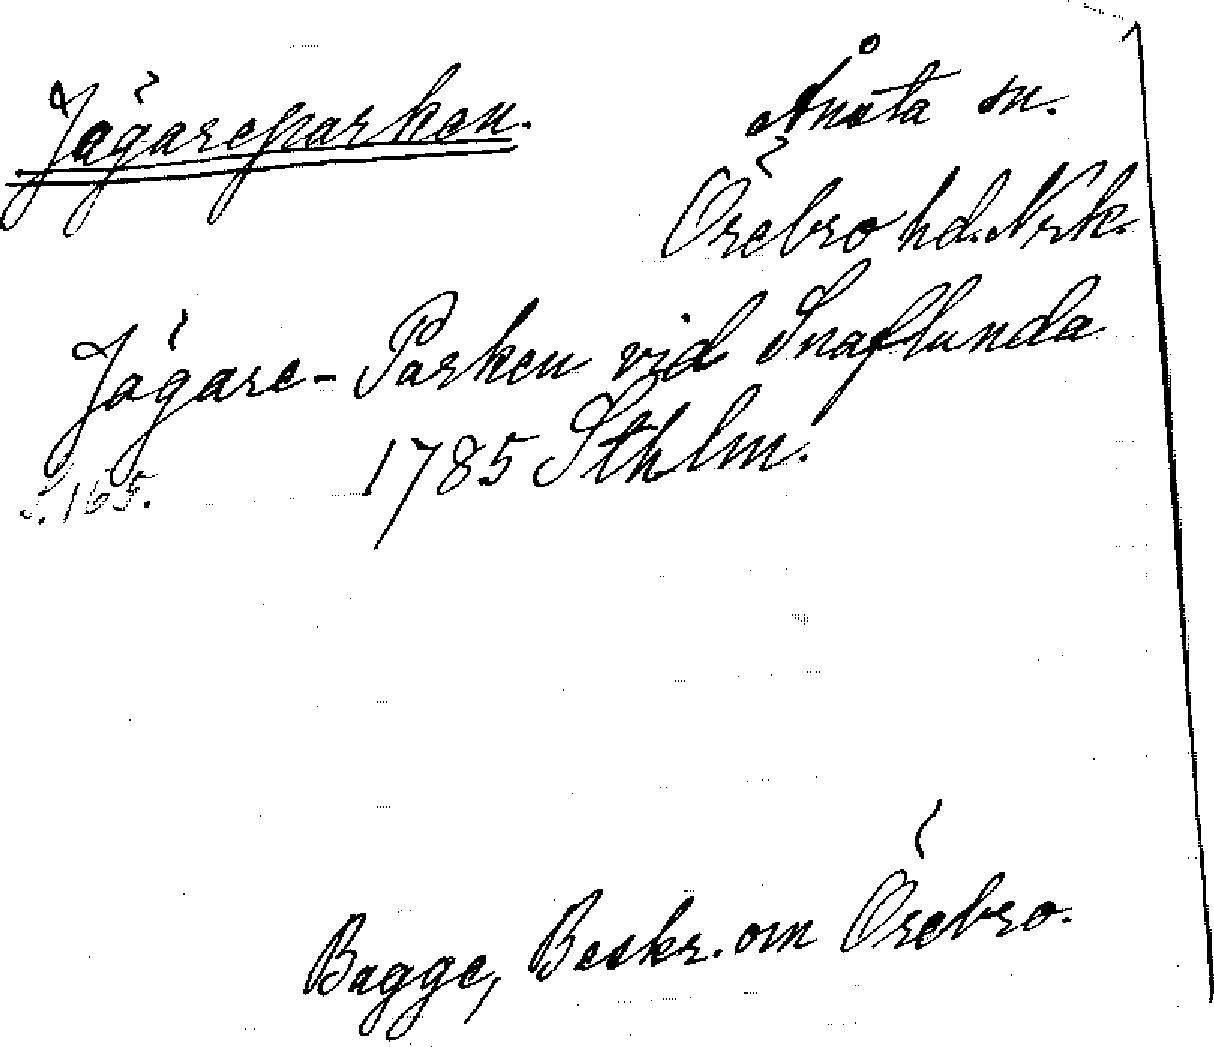 Jägareparken.
Ånsta sn.
Örebro hd. Nrk.
Jägare-Parken vid Snaflunda
1785 Sthlm.
s. 165.
Bagge, Beskr. om Örebro.